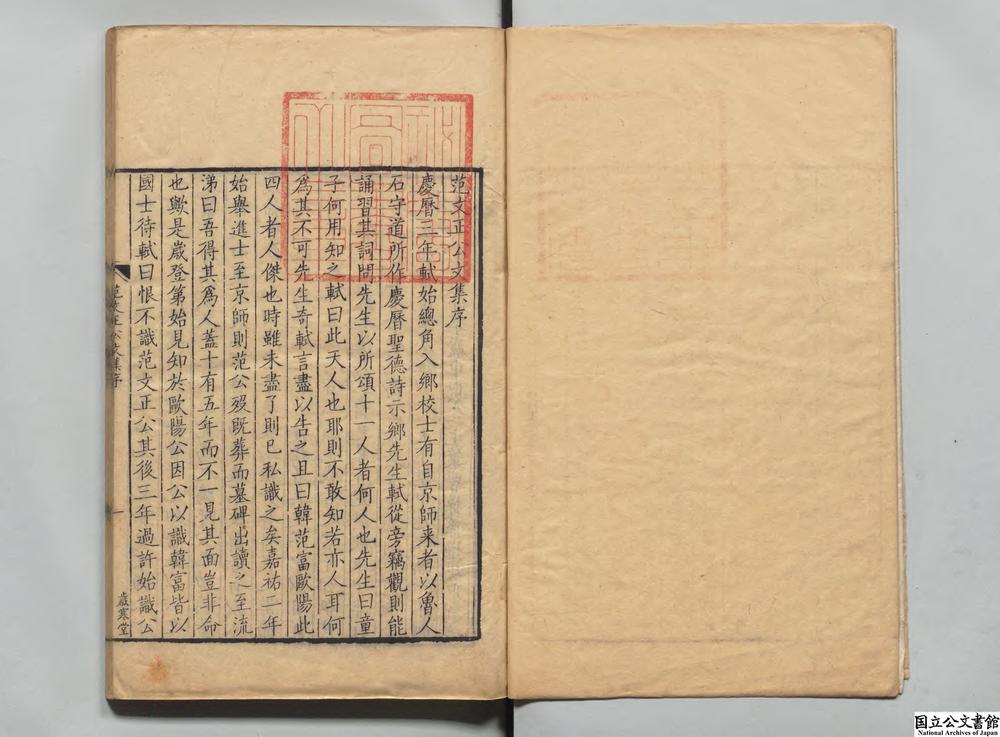 范文正公文集序
慶曆三年軾始總角入鄉校士有自京師来者以魯人
石守道所作慶曆聖德詩示鄉先生軾從旁竊觀則能
誦習其詞問先生以所頌十一人者何人也先生曰童
子何用知之軾曰此天人也耶則不敢知若亦人耳何
爲其不可先生奇軾言盡以告之且曰韓范富歐陽此
四人者人傑也時雖未盡了則已私識之矣嘉祐二年
始舉進士至京師則范公歿既葬而墓碑出讀之至流
涕曰吾得其爲人蓋十有五年而不一見其面豈非命
也歟是歲登第始見知於歐陽公因公以識韓富皆以
國士待軾曰恨不識范文正公其後三年過許始識公
范文正公文集序
一
歲寒堂
国立公文書館
National Archives of Japan